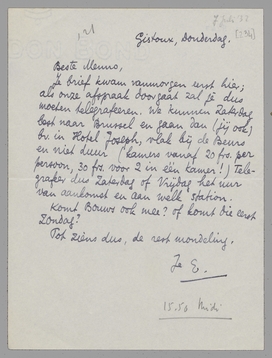 7 juli 32
Gistoux, Donderdag.
Beste Menno,
Je brief kwam vanmorgen eerst hier;
als onze afspraak doorgaat zal je dus
moeten telegrafeeren. We kunnen Zaterdag
best naar Brussel en gaan dan (jij ook)
bv. in Hotel Joseph, vlak bij de Beurs
en niet duur (kamers vanaf 20 frs. per
persoon, 30 frs. voor 2 in één kamer!) Tele-
grafeer dus Zaterdag of Vrijdag het uur
van aankomst en aan welk station.
Komt Bouws ook mee? of komt die eerst
Zondag?
Tot ziens dus, de rest mondeling.
Je E.
15.50 Midi